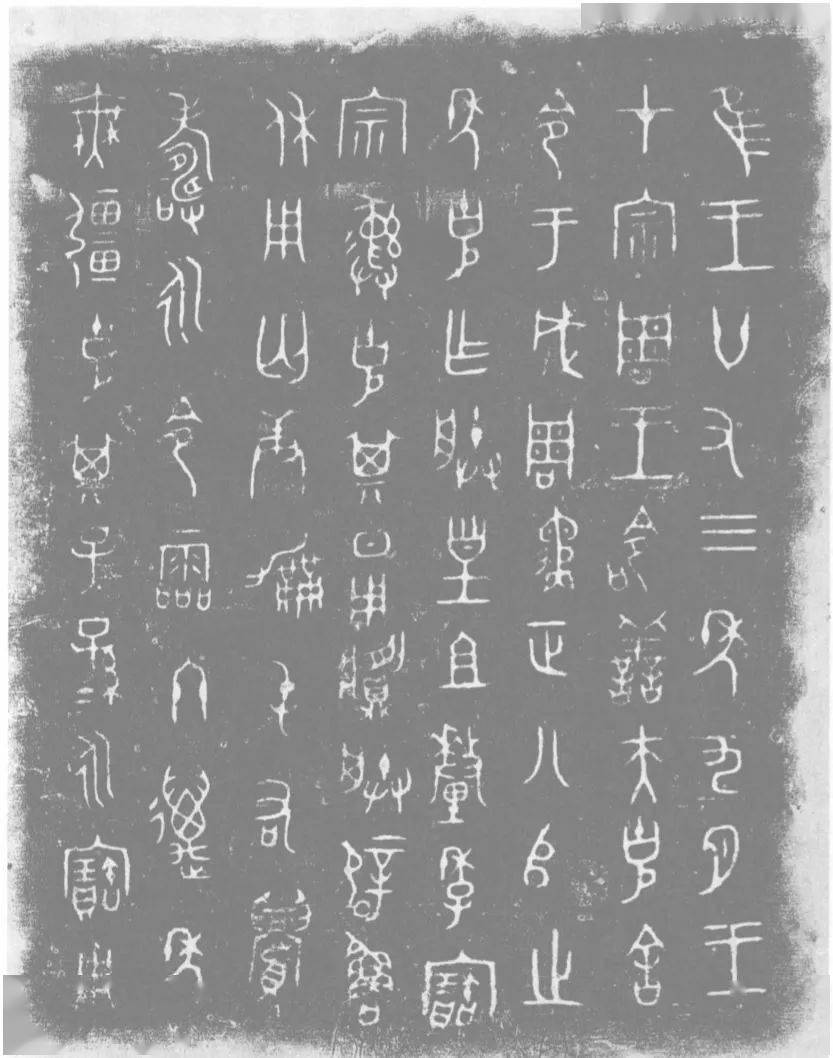 隹王廿又三年九月王
才宗周王命善夫克舍
令于成周遹正八𠂤之
年克乍朕皇且釐季寶
宗彝克其日用䵼朕辟魯
休用匄康勵屯右眉
壽永令霝冬萬年
無疆克其子=孫=永寶用